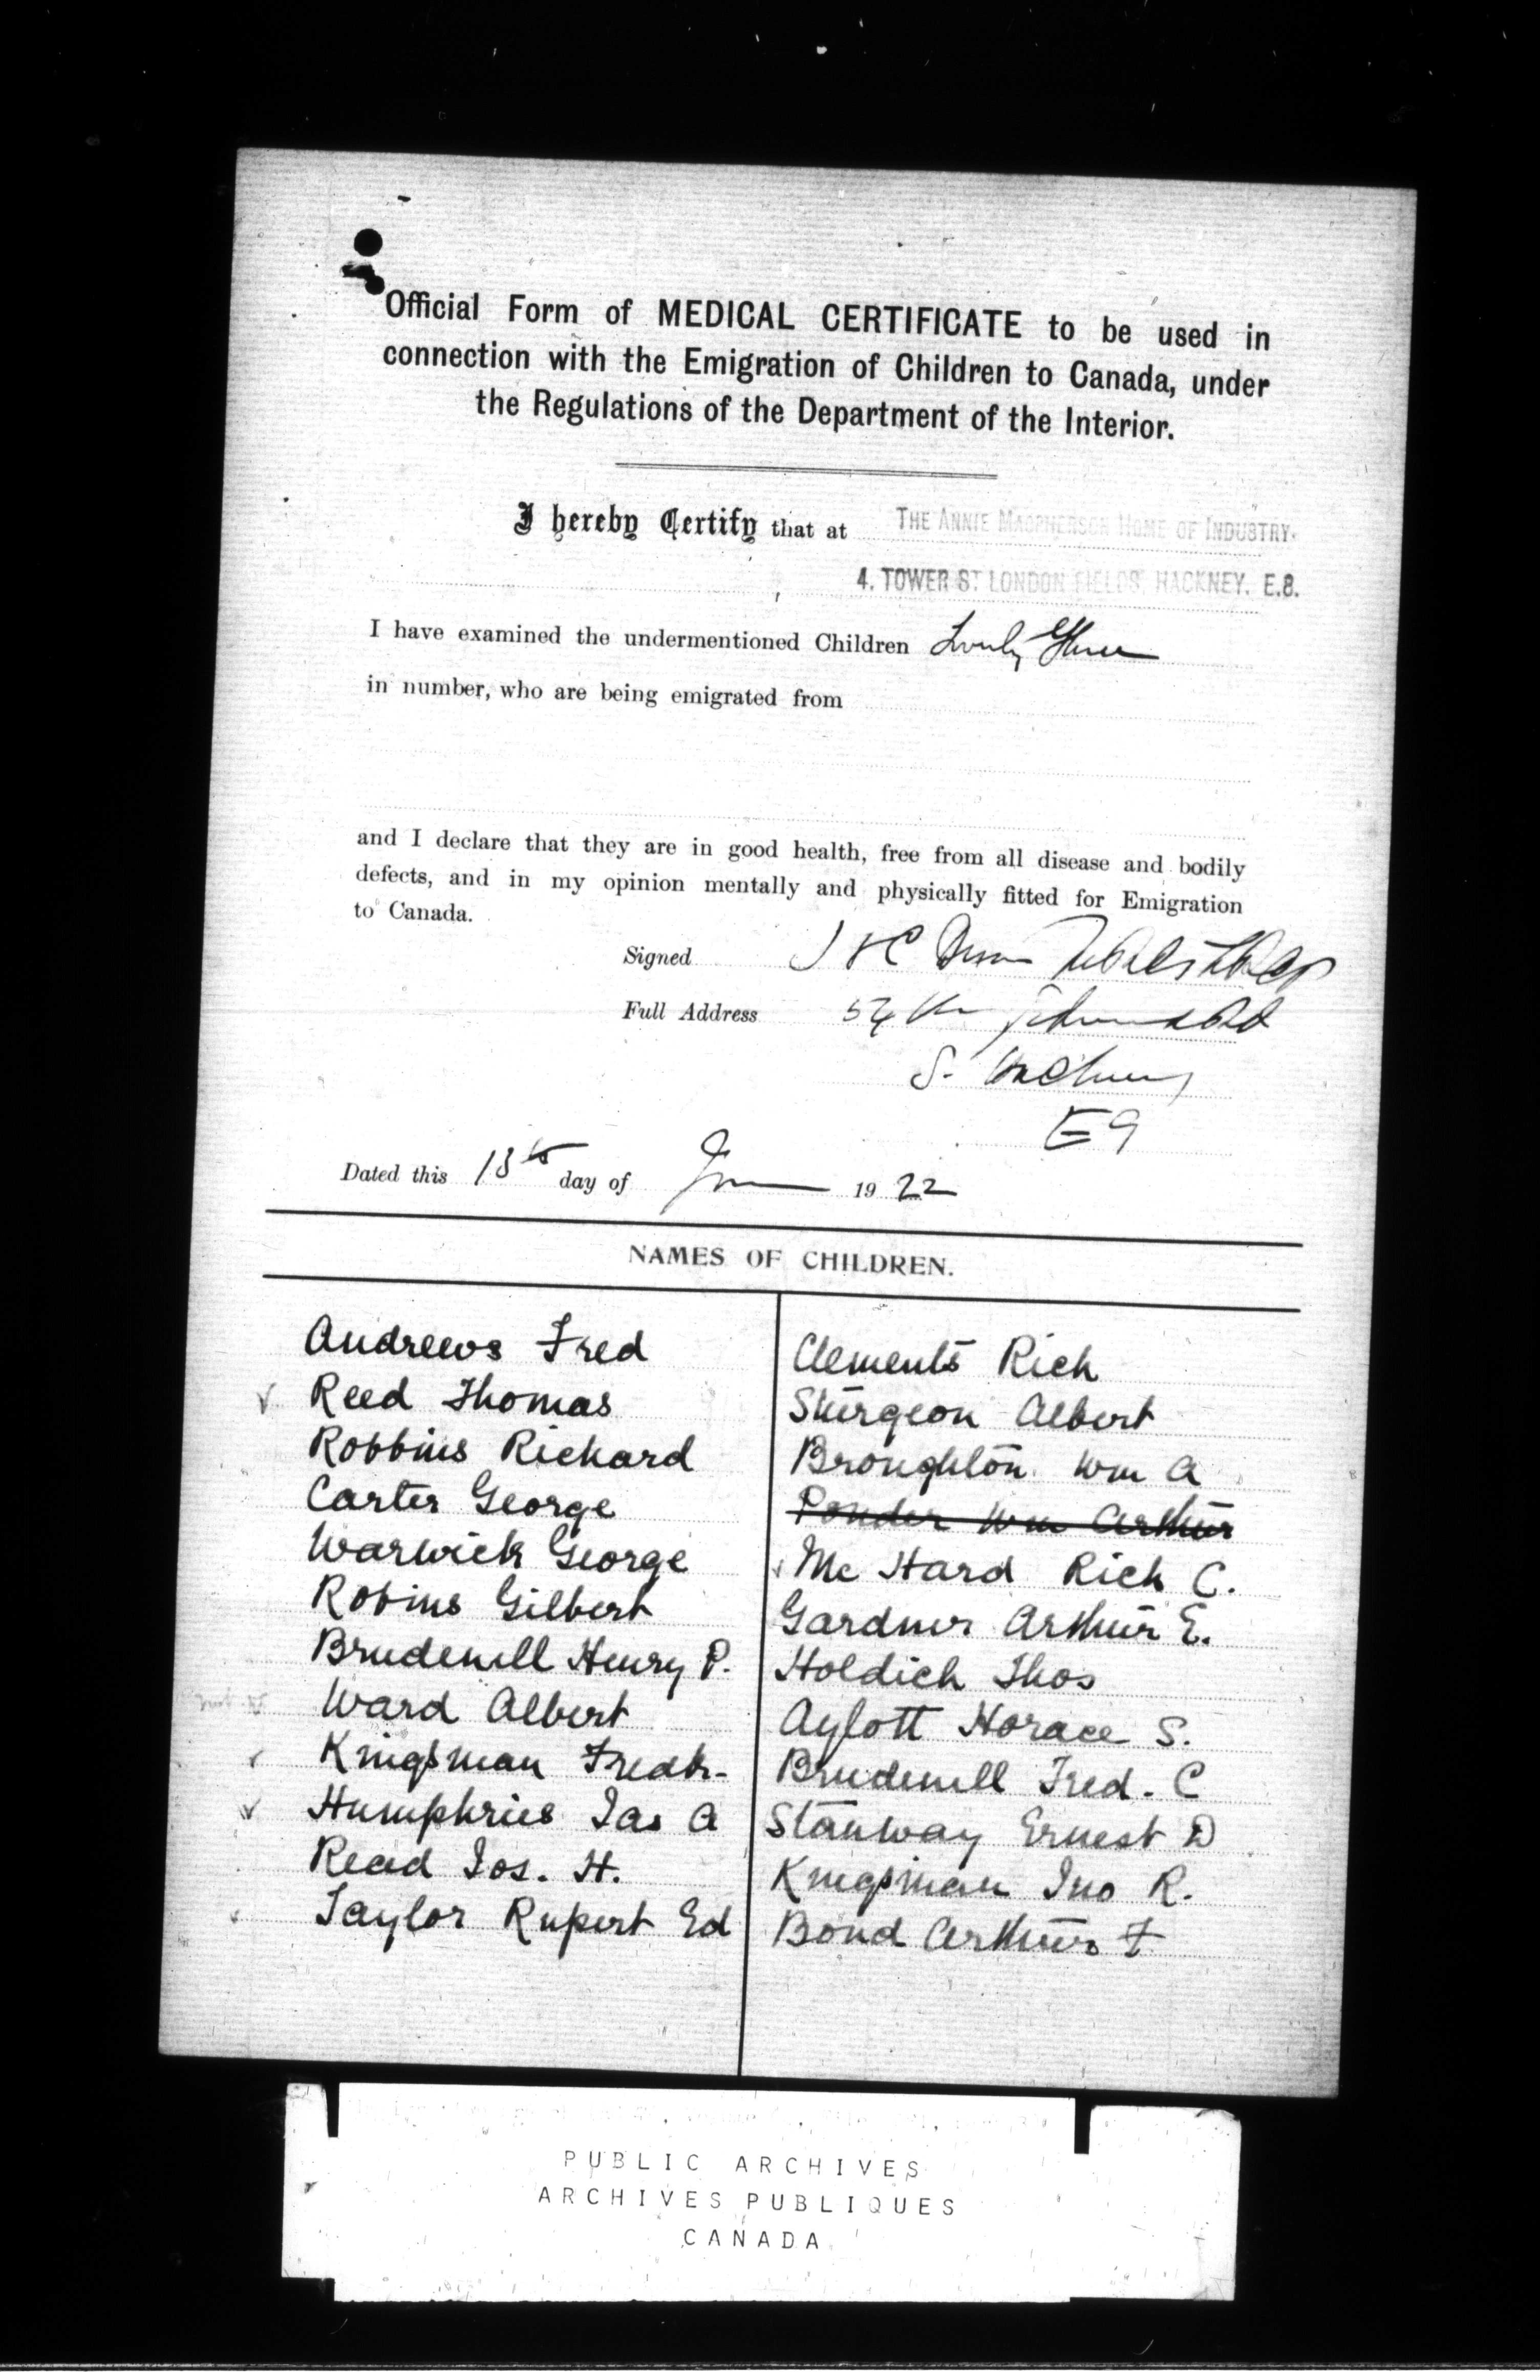 Official Form of MEDICAL CERTIFICATE to be used in
connection with the Emigration of Children to Canada, under
the Regulations of the Department of the Interior.
I hereby Certify that at THE ANNIE MACPHERSON HOME OF INDUSTRY.
4. TOWER ST. LONDON FIELDS, HACKNEY. E.8.
I have examined the undermentioned Children Twenty Three
in number, who are being emigrated from
and I declare that they are in good health, free from all disease and bodily
defects, and in my opinion mentally and physically fitted for Emigration
to Canada.
Signed
Full Address
S. Hackney
E9
Dated this 13th day of June 1922
NAMES OF CHILDREN.
Andrews Fred
Reed Thomas
Robbins Richard
Carter George
Warwick George
Robins Gilbert
Brudenell Henry P.
Ward Albert
Kingsman Fredk.
Humphries Jas A
Read Jos. H.
Taylor Rupert Ed
Clements Rich
Sturgeon Albert
Broughton Wm A
Ponder Wm Arthur
Mc Hard Rich C.
Gardner Arthur E.
Holdich Thos
Aylott Horace S.
Brudenell Fred. C
Stanway Ernest D
Kingsman Jno R.
Bond Arthur F
PUBLIC ARCHIVES
ARCHIVES PUBLIQUES
CANADA